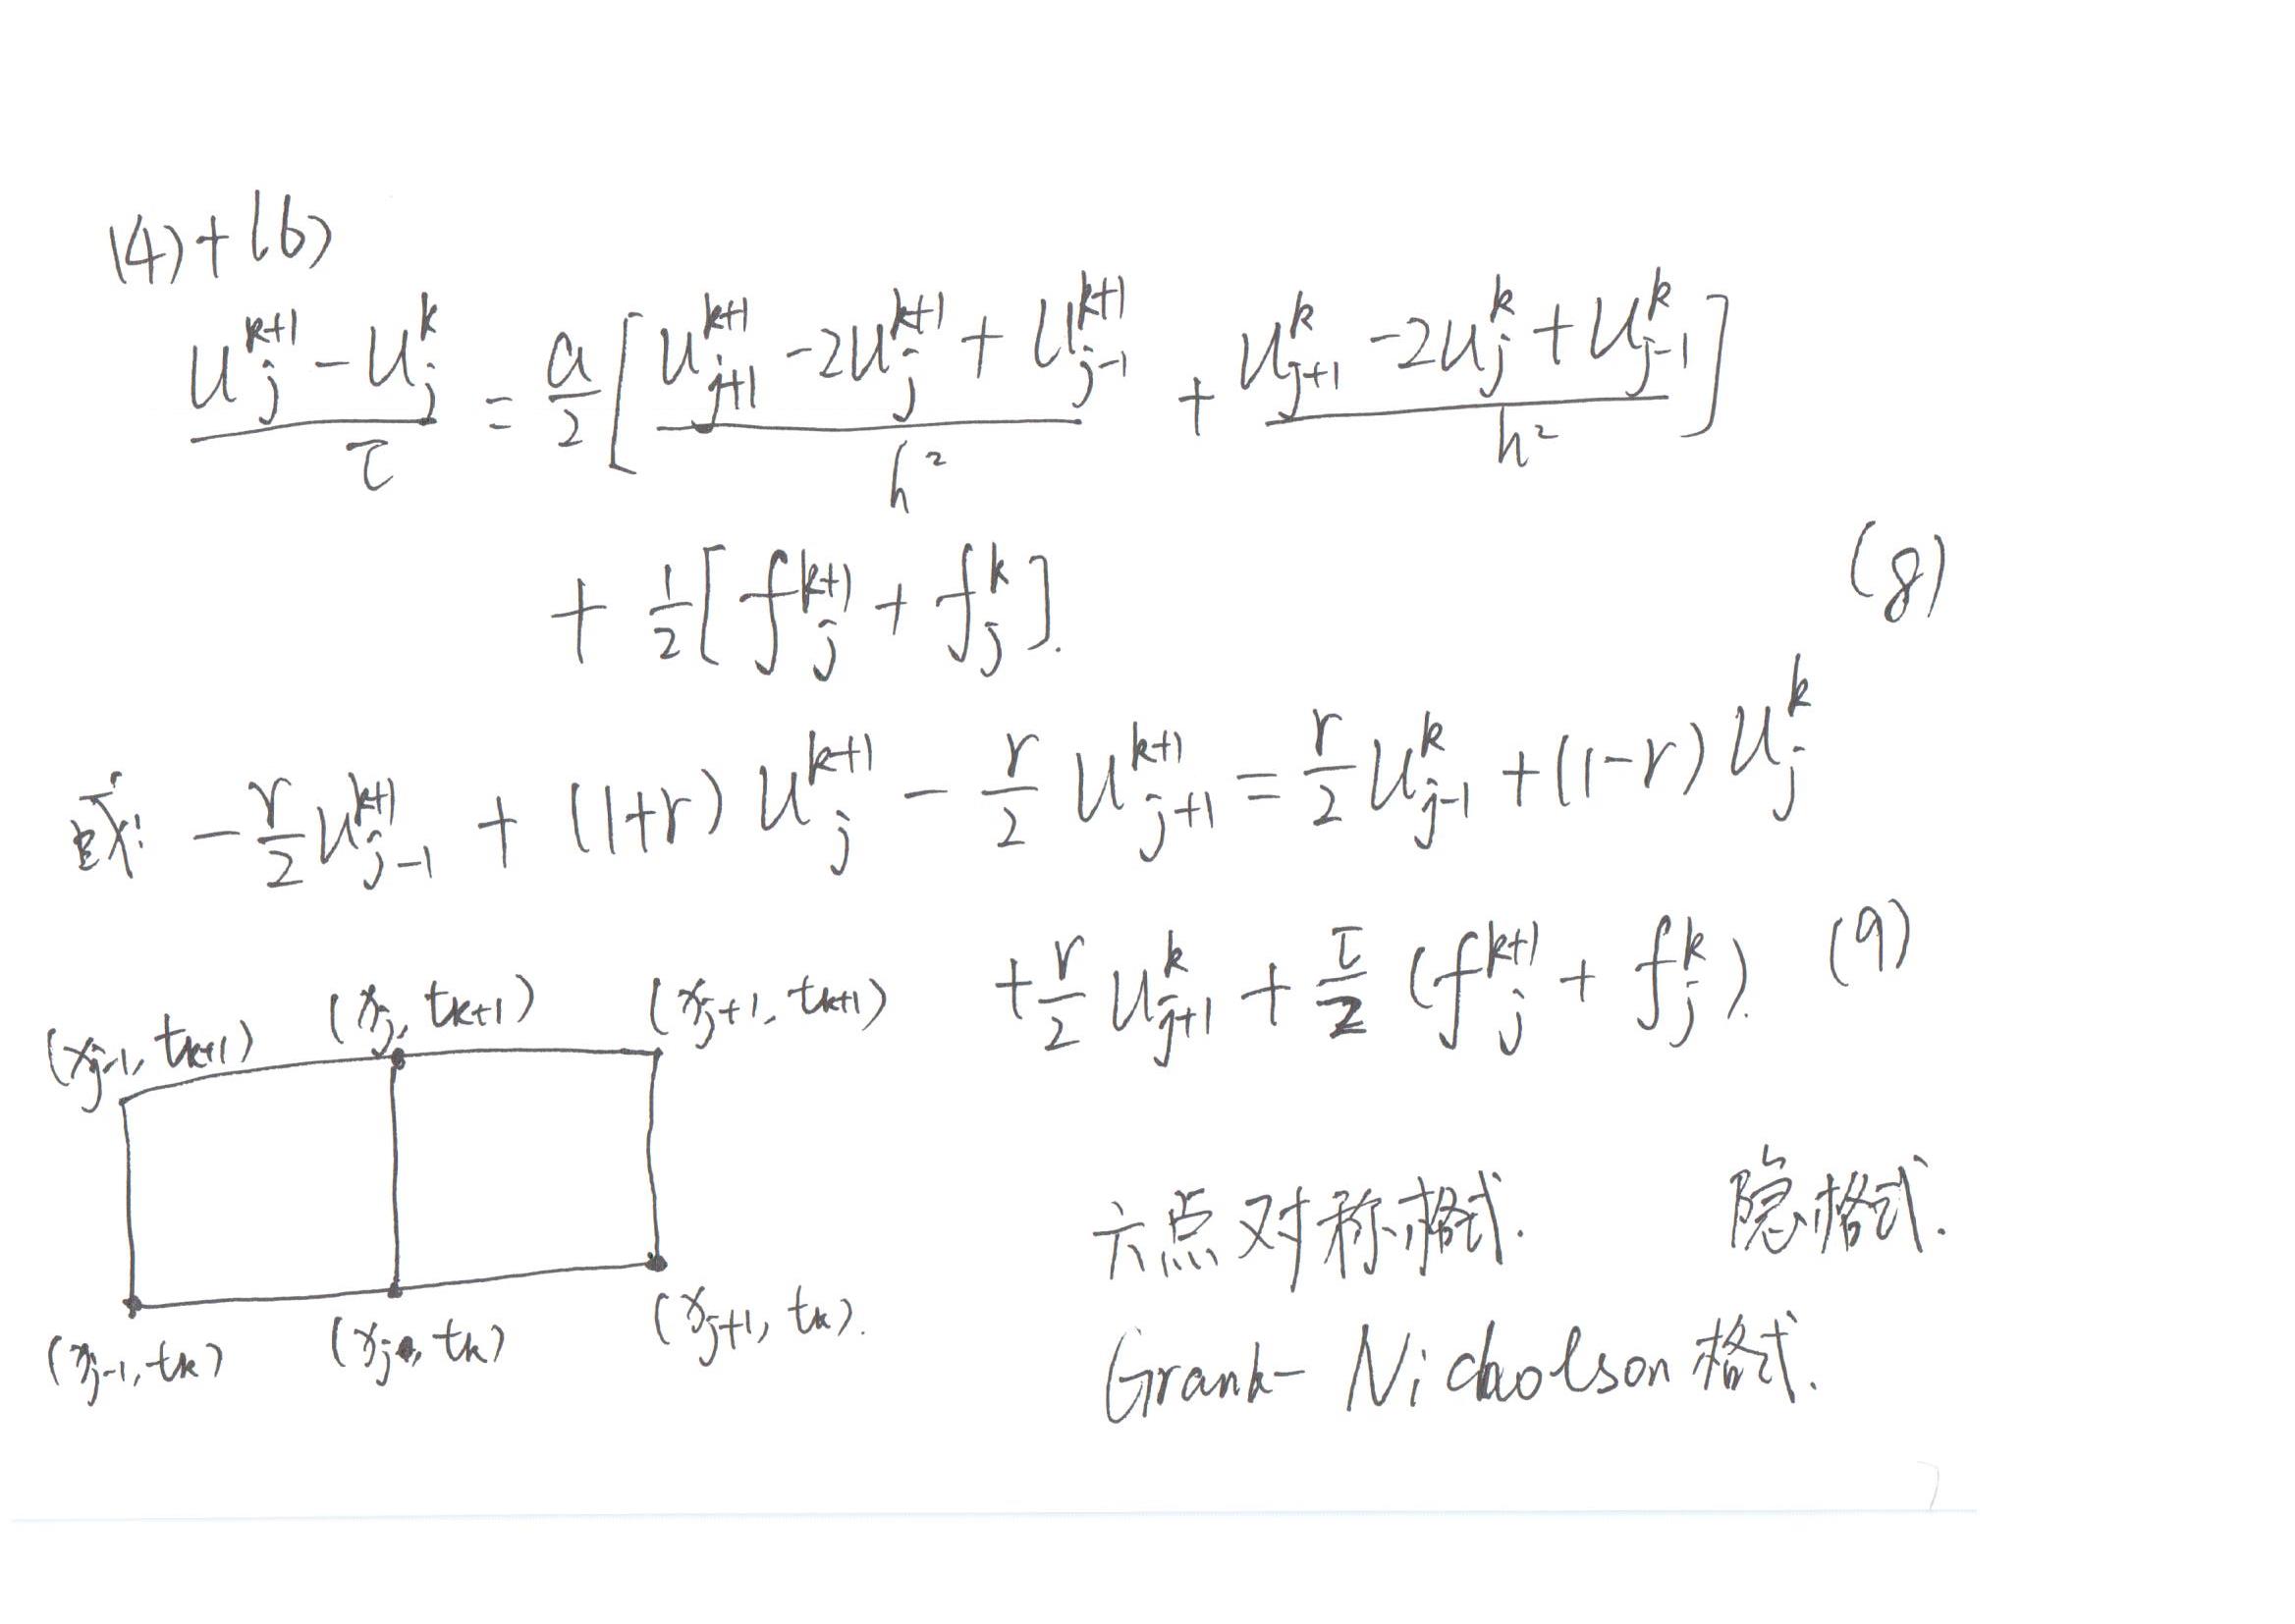 (4)+(6)
\frac{u_j^{k+1} - u_j^k}{\tau} = \frac{a}{2} \left[ \frac{u_{j+1}^{k+1} - 2u_j^{k+1} + u_{j-1}^{k+1}}{h^2} + \frac{u_{j+1}^k - 2u_j^k + u_{j-1}^k}{h^2} \right]
+ \frac{1}{2} [ f_j^{k+1} + f_j^k ]. (8)
或: -\frac{r}{2} u_{j-1}^{k+1} + (1+r) u_j^{k+1} - \frac{r}{2} u_{j+1}^{k+1} = \frac{r}{2} u_{j-1}^k + (1-r) u_j^k
+ \frac{r}{2} u_{j+1}^k + \frac{\tau}{2} (f_j^{k+1} + f_j^k). (9)
(x_{j-1}, t_{k+1}) (x_j, t_{k+1}) (x_{j+1}, t_{k+1})
(x_{j-1}, t_k) (x_j, t_k) (x_{j+1}, t_k).
六点对称格式. 隐格式.
Grank-Nicholson 格式.